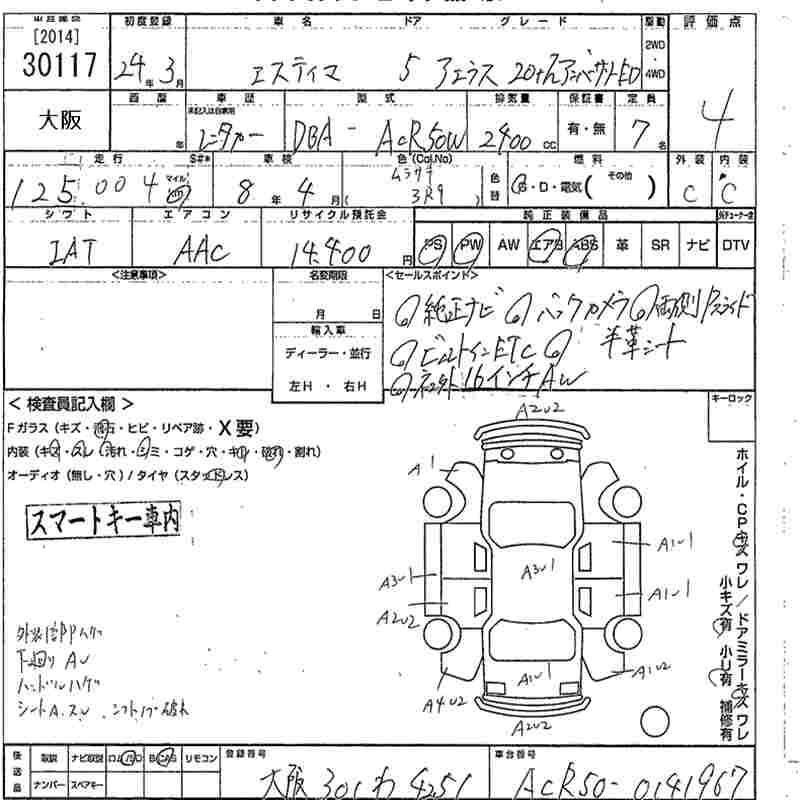 [2014]
30117
大阪
初度登録 車名 ドア グレード 駆動 評価点
24年 3月 エスティマ 5 アエラス 2WD・4WD
4
車歴 型式 排気量 保証書 定員
未記入は自家用
レンタカー DBA - ACR50W 2400cc 有・無 7名
走行 S#* 車検 色(Col.No) 燃料 外装 内装
125.004 マイル 8年 4月 3R9 色替 G・D・電気( その他 ) C C
シフト エアコン リサイクル預託金 純正装備品
IAT AAC 14.400円 PS PW AW エアB ABS 革 SR ナビ DTV
<注意事項> 名変期限 <セールスポイント>
月 日
輸入車
ディーラー・並行
左H・右H
純正ナビ バックカメラ 両側Pスライド
ビルトインETC 半革シート
16インチAW
< 検査員記入欄 >
Fガラス(キズ・飛石・ヒビ・リペア跡・X要)
内装(キズ・スレ・汚れ・シミ・コゲ・穴・キレ・破れ・割れ)
オーディオ(無し・穴)/タイヤ(スタッドレス)
スマートキー車内
キーロック
ホイル・CPキズ ワレ/ドアミラーキズ ワレ
小キズ有 小U有 補修有
A2U2
A1
A1U1
A3U1
A3U1
A1U1
A2U2
A1U1
A1U2
A4U2
A2U2
下廻り AU
ハンドルハゲ
後送品 取説 ナビ取説 ロム/CD B-CAS リモコン
ナンバー スペアキー
登録番号 車台番号
大阪 301 わ 4251 ACR50-0141967